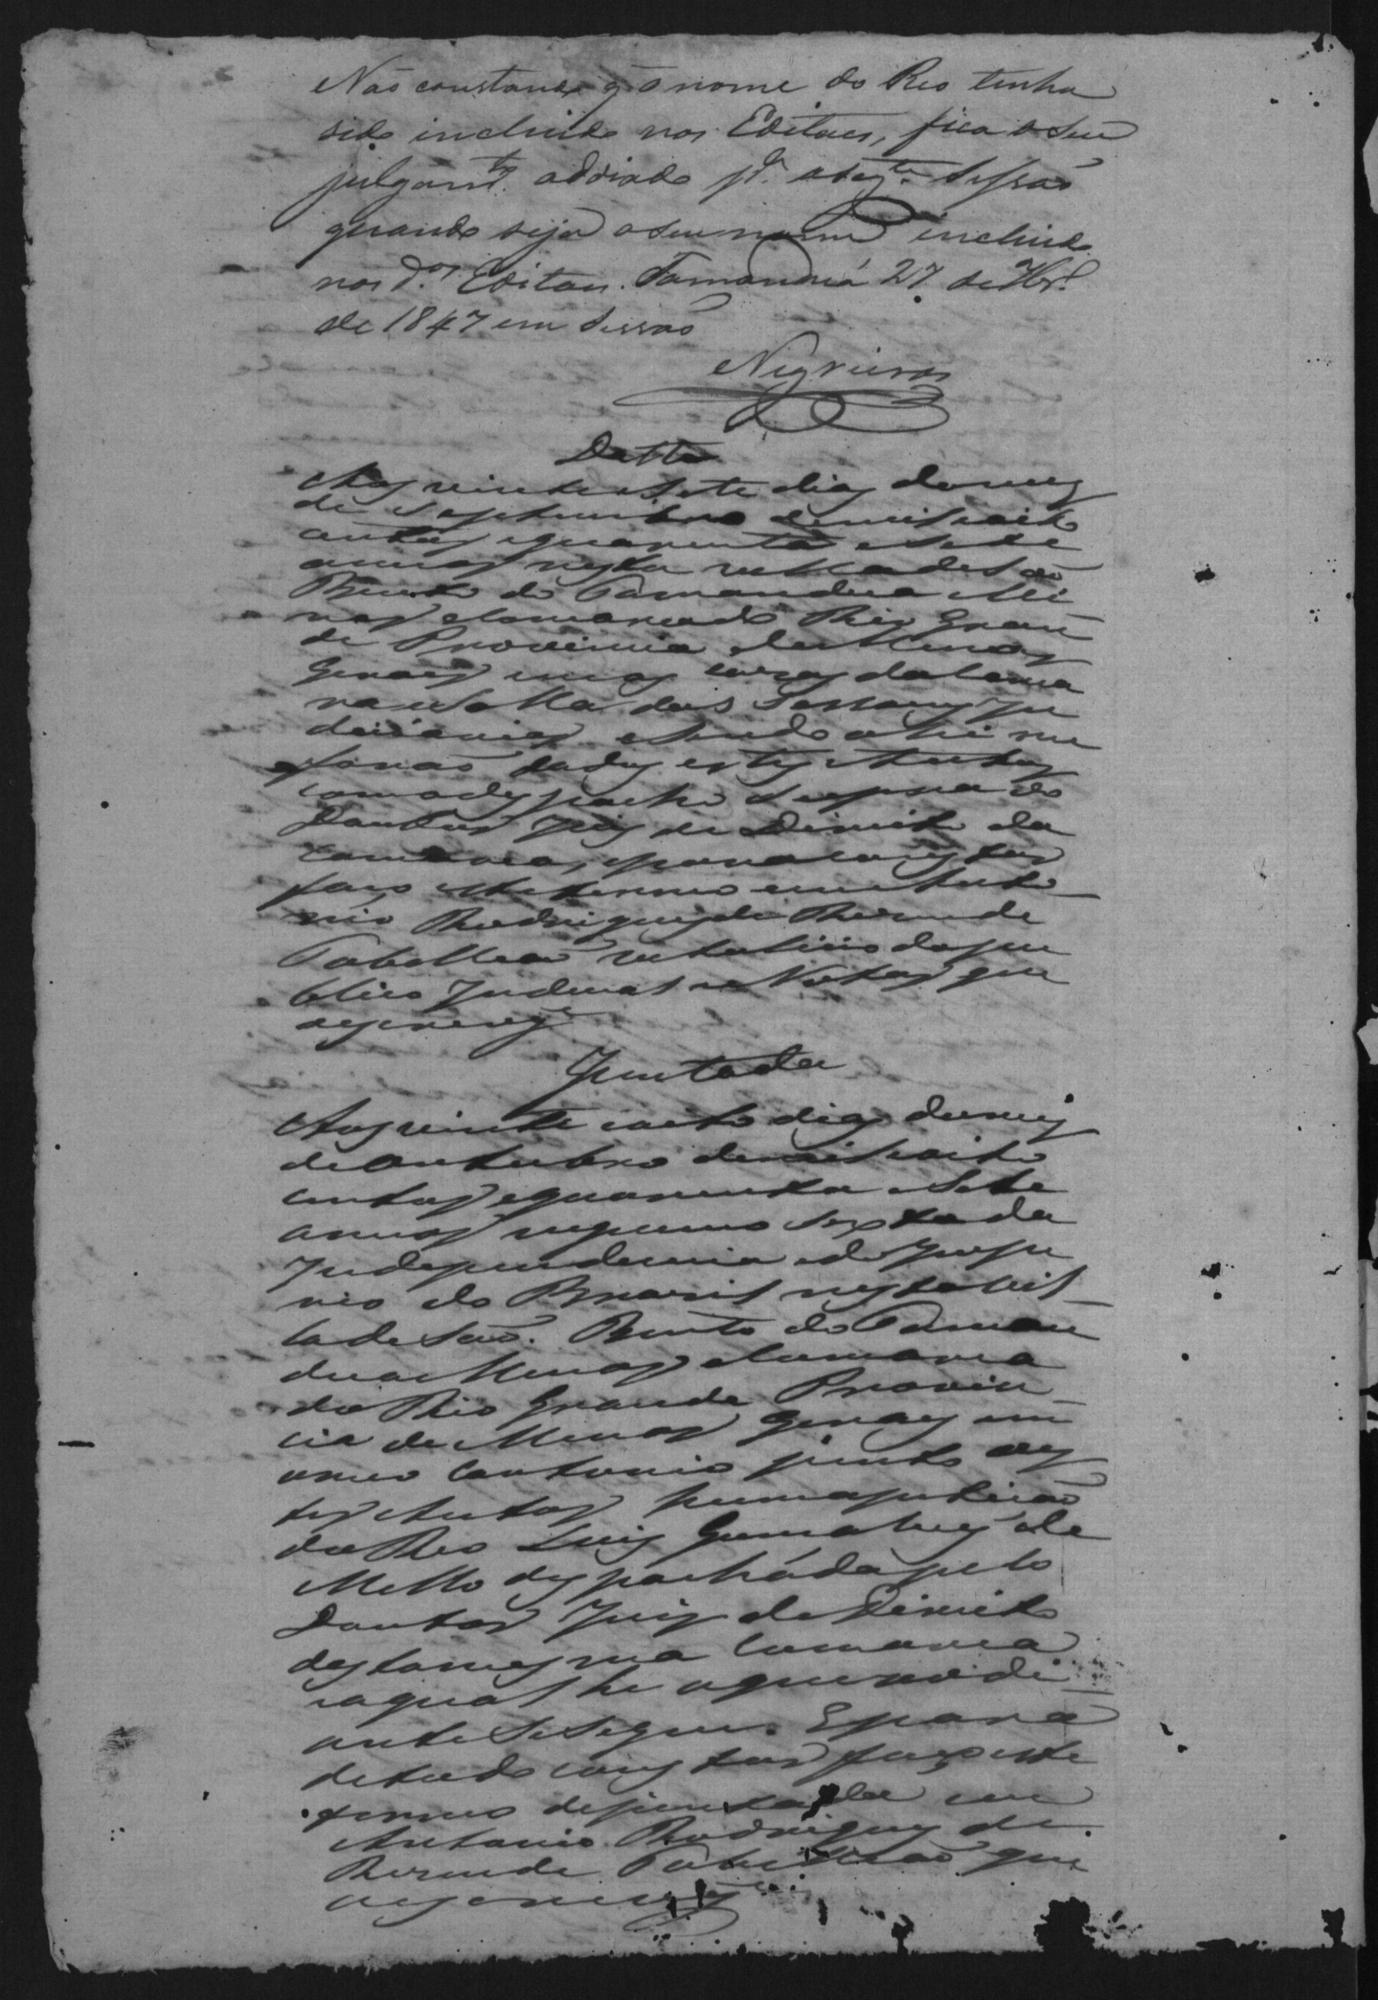 Não constando q̃ o nome do Reo tenha
sido incluido nos Editaes, fica o seu
julgamto. addiado pa. a segte. Sessão
quando seja o seu nome incluido
nos dos. Editaes. Tamanduá 27 de 7br.º
de 1847 em Sessão
Negreiros
Datta
Aos vinte e Sete dias do mez
de Septembro de mil oito
centos e quarenta e Sete
annos nesta villa de São
Bento do Tamandua Mi
nas e Comarca do Rio Gran
de Provincia de Minas
Geraes em as cazas da Cama
ra e Salla das Sessoens Ju
diciarias e sendo ahi me
forão dados estes Autos
com o despacho Supra do
Doutor Juiz de Direito da
Comarca, e para constar
faço este termo eu Anto
nio Rodrigues de Rezende
Tabellião vitalicio do pu
blico Judicial e Notas que
o escrevy
Juntada
Aos vinte e oito dias do mez
de Outubro de mil oito
centos e quarenta e Sete
annos vigesimo sexto da
Independencia e do Impe
rio do Brazil nesta vil
la de São Bento do Taman
dua Minas e Comarca
do Rio Grande Provin
cia de Minas Geraes em
o meu Cartorio junto a es
tes Autos huma petição
do Reo Luis Gonçalves de
Mello despachada pelo
Doutor Juiz de Direito
desta mesma Comarca
a qual he a que ao di
ante Se Segue. E para
de tudo constar faço este
termo de juntada eu
Antonio Rodrigues de
Rezende Tabellião que
o escrevy